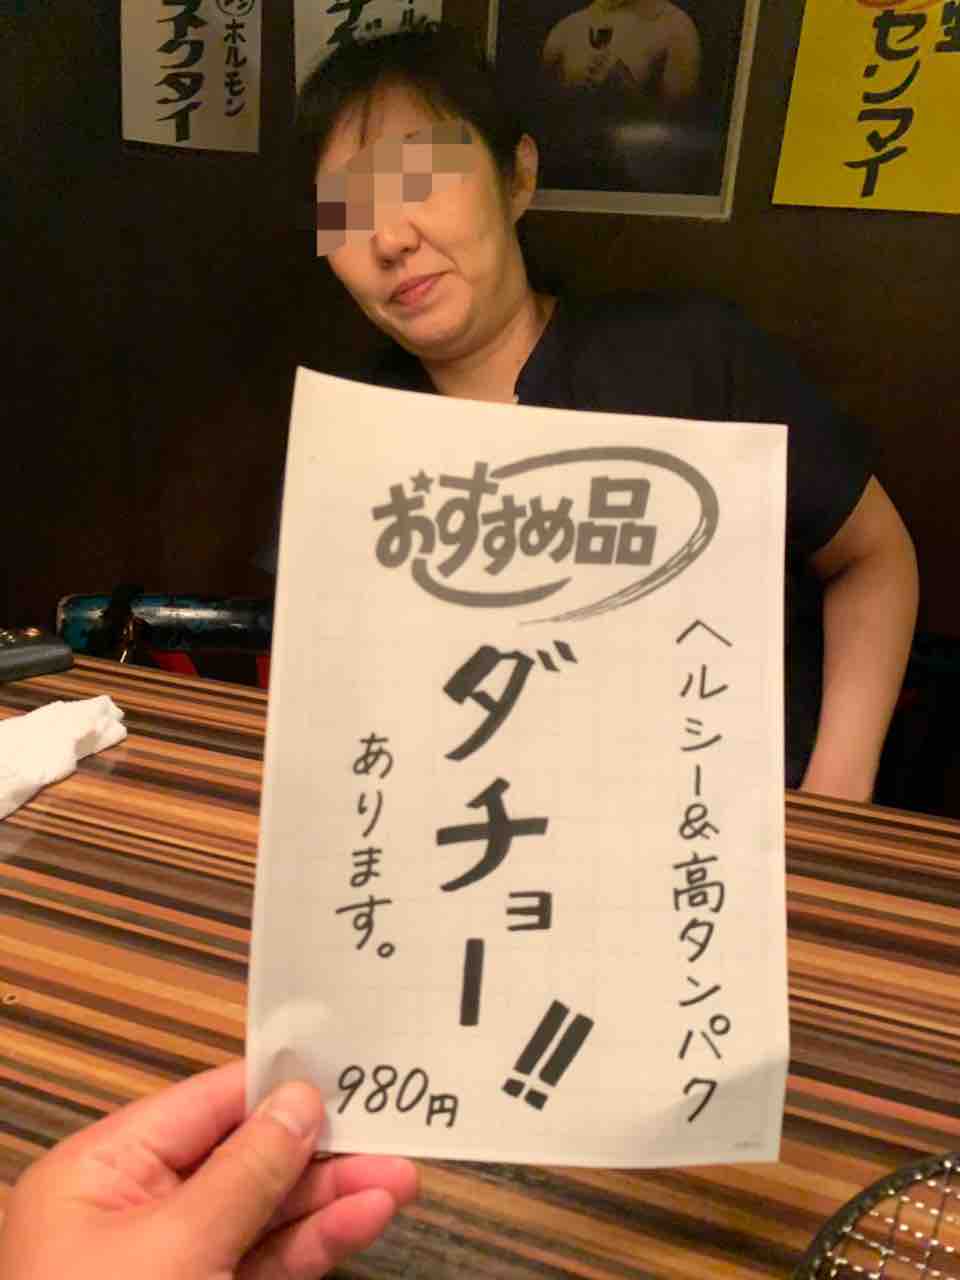 ネクタイ
ホルモン
センマイ
おすすめ品
ヘルシー&高タンパク
ダチョー!!
あります。
980円